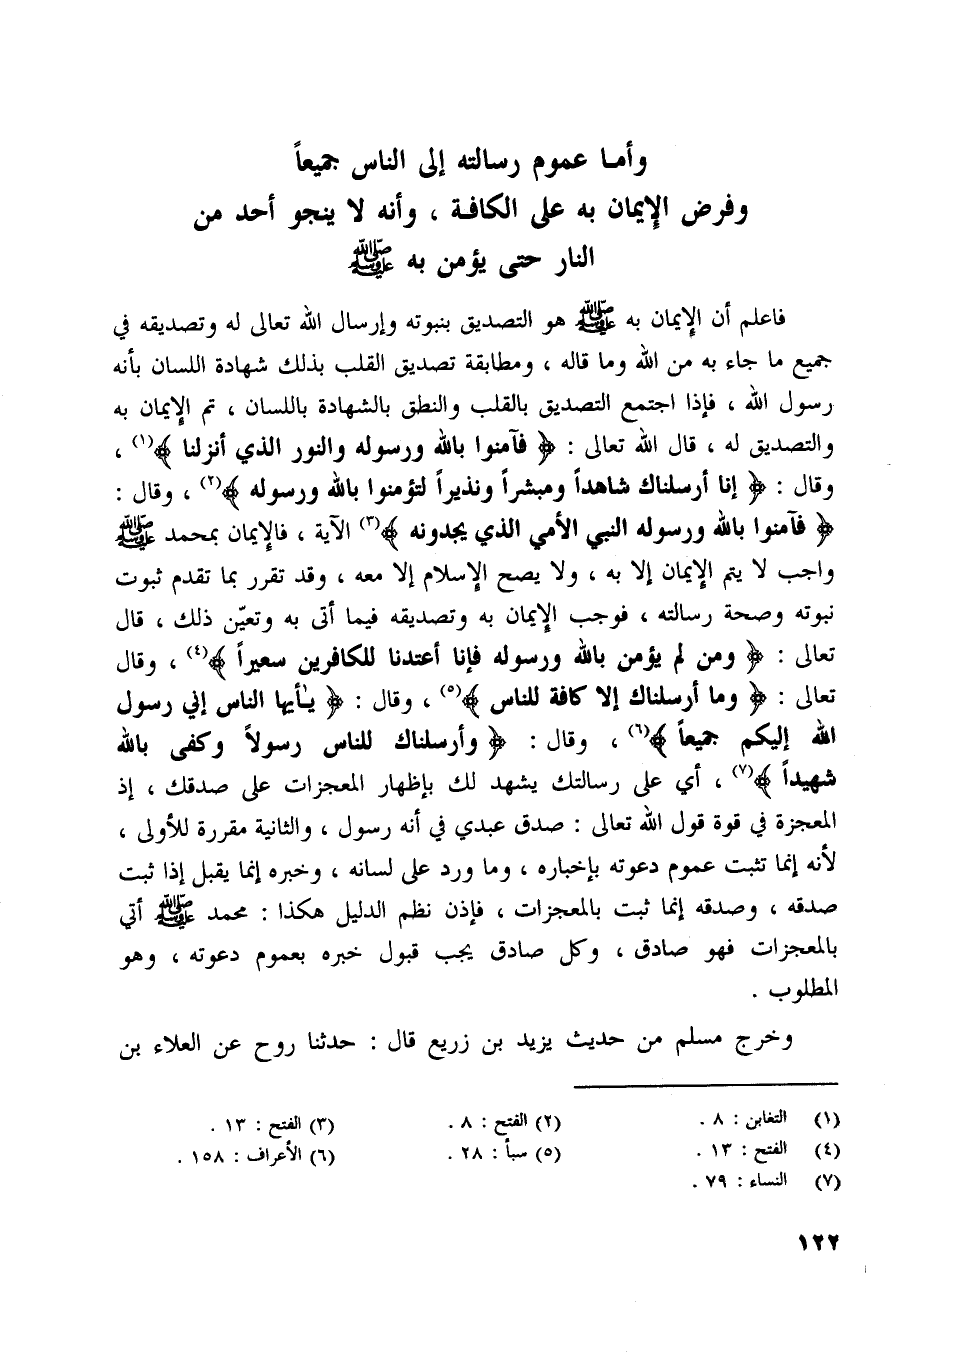 وأما عموم رسالته إلى الناس جميعاً
وفرض الإيمان به على الكافة ، وأنه لا ينجو أحد من
النار حتى يؤمن به ﷺ
فاعلم أن الإيمان به ﷺ هو التصديق بنبوته وإرسال الله تعالى له وتصديقه في
جميع ما جاء به من الله وما قاله ، ومطابقة تصديق القلب بذلك شهادة اللسان بأنه
رسول الله ، فإذا اجتمع التصديق بالقلب والنطق بالشهادة باللسان ، تم الإيمان به
والتصديق له ، قال الله تعالى : ﴿ فآمنوا بالله ورسوله والنور الذي أنزلنا ﴾(١) ،
وقال : ﴿ إنا أرسلناك شاهداً ومبشراً ونذيراً لتؤمنوا بالله ورسوله ﴾(٢) ، وقال :
﴿ فآمنوا بالله ورسوله النبي الأمي الذي يجدونه ﴾(٣) الآية ، فالإيمان بمحمد ﷺ
واجب لا يتم الإيمان إلا به ، ولا يصح الإسلام إلا معه ، وقد تقرر بما تقدم ثبوت
نبوته وصحة رسالته ، فوجب الإيمان به وتصديقه فيما أتى به وتعيّن ذلك ، قال
تعالى : ﴿ ومن لم يؤمن بالله ورسوله فإنا أعتدنا للكافرين سعيراً ﴾(٤) ، وقال
تعالى : ﴿ وما أرسلناك إلا كافة للناس ﴾(٥) ، وقال : ﴿ يـٰأيها الناس إني رسول
الله إليكم جميعاً ﴾(٦) ، وقال : ﴿ وأرسلناك للناس رسولاً وكفى بالله
شهيداً ﴾(٧) ، أي على رسالتك يشهد لك بإظهار المعجزات على صدقك ، إذ
المعجزة في قوة قول الله تعالى : صدق عبدي في أنه رسول ، والثانية مقررة للأولى ،
لأنه إنما تثبت عموم دعوته بإخباره ، وما ورد على لسانه ، وخبره إنما يقبل إذا ثبت
صدقه ، وصدقه إنما ثبت بالمعجزات ، فإذن نظم الدليل هكذا : محمد ﷺ أتي
بالمعجزات فهو صادق ، وكل صادق يجب قبول خبره بعموم دعوته ، وهو
المطلوب .
وخرج مسلم من حديث يزيد بن زريع قال : حدثنا روح عن العلاء بن
(١) التغابن : ٨ . (٢) الفتح : ٨ . (٣) الفتح : ١٣ .
(٤) الفتح : ١٣ . (٥) سبأ : ٢٨ . (٦) الأعراف : ١٥٨ .
(٧) النساء : ٧٩ .
١٢٢